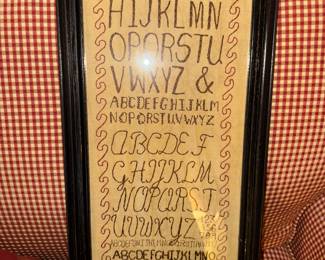 HIJKLMN
OPQRSTU
VWXYZ &
ABCDEFGHIJKLM
NOPQRSTUVWXYZ
ABCDEF
GHIJKLM
NOPQRST
UVWXYZ
ABCDEFGHIJKLMNOPQRSTUVWXYZ
ABCDEFGHIJKLMNO